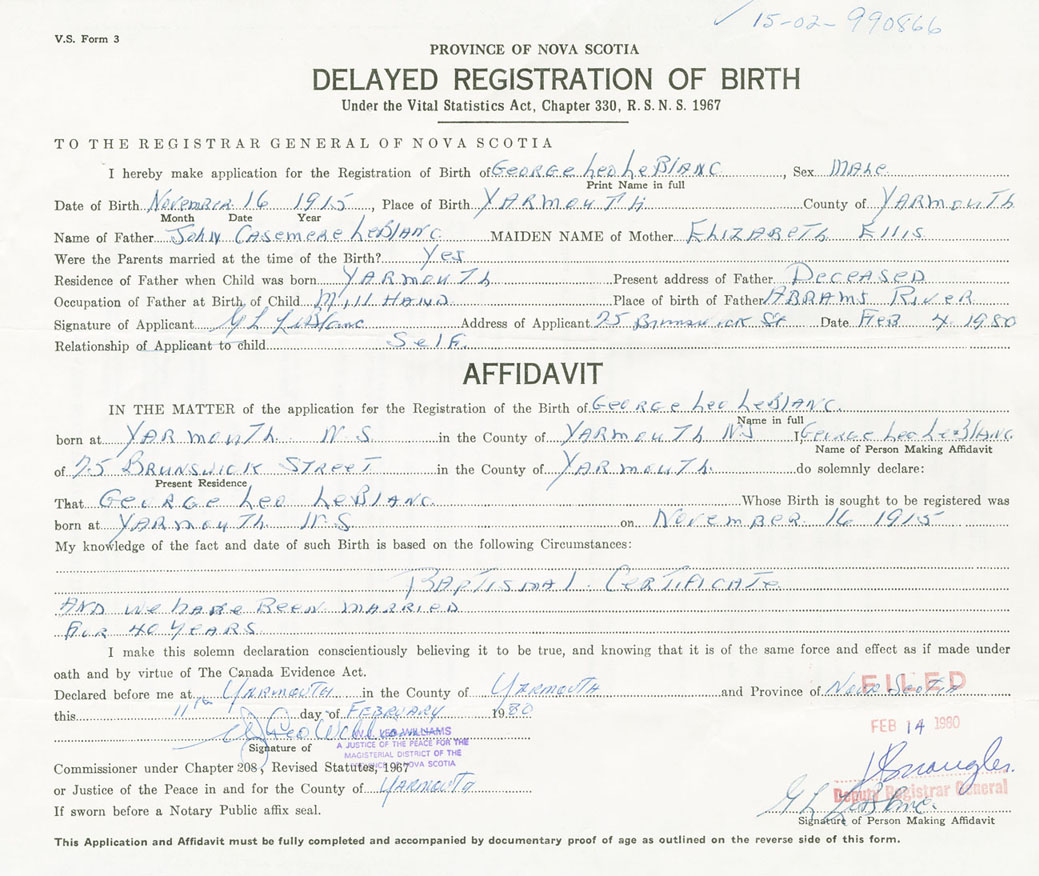 ✓ 15-02-990866
V.S. Form 3
PROVINCE OF NOVA SCOTIA
DELAYED REGISTRATION OF BIRTH
Under the Vital Statistics Act, Chapter 330, R. S. N. S. 1967
TO THE REGISTRAR GENERAL OF NOVA SCOTIA
I hereby make application for the Registration of Birth of George Leo LeBlanc, Sex Male
Print Name in full
Date of Birth November 16 1915, Place of Birth Yarmouth County of Yarmouth
Month Date Year
Name of Father John Casemere LeBlanc MAIDEN NAME of Mother Elizabeth Ellis
Were the Parents married at the time of the Birth? Yes
Residence of Father when Child was born Yarmouth Present address of Father Deceased
Occupation of Father at Birth of Child Mill Hand Place of birth of Father Abrams River
Signature of Applicant G L LeBlanc Address of Applicant 75 Brunswick St Date Feb 4 1980
Relationship of Applicant to child Self
AFFIDAVIT
IN THE MATTER of the application for the Registration of the Birth of George Leo LeBlanc
Name in full
born at Yarmouth N.S in the County of Yarmouth NS I George Leo LeBlanc
Name of Person Making Affidavit
of 75 Brunswick Street in the County of Yarmouth do solemnly declare:
Present Residence
That George Leo LeBlanc Whose Birth is sought to be registered was
born at Yarmouth N.S on November 16 1915
My knowledge of the fact and date of such Birth is based on the following Circumstances:
Baptismal Certificate
And we have been married
for 40 years
I make this solemn declaration conscientiously believing it to be true, and knowing that it is of the same force and effect as if made under
oath and by virtue of The Canada Evidence Act.
Declared before me at Yarmouth in the County of Yarmouth and Province of Nova Scotia
FILED
this 11th day of February 1980
FEB 14 1980
W. Leo Williams
Signature of
W. LEO WILLIAMS
A JUSTICE OF THE PEACE FOR THE
MAGISTERIAL DISTRICT OF THE
PROVINCE OF NOVA SCOTIA
Commissioner under Chapter 208, Revised Statutes, 1967
or Justice of the Peace in and for the County of Yarmouth
Deputy Registrar General
G L LeBlanc
If sworn before a Notary Public affix seal.
Signature of Person Making Affidavit
This Application and Affidavit must be fully completed and accompanied by documentary proof of age as outlined on the reverse side of this form.